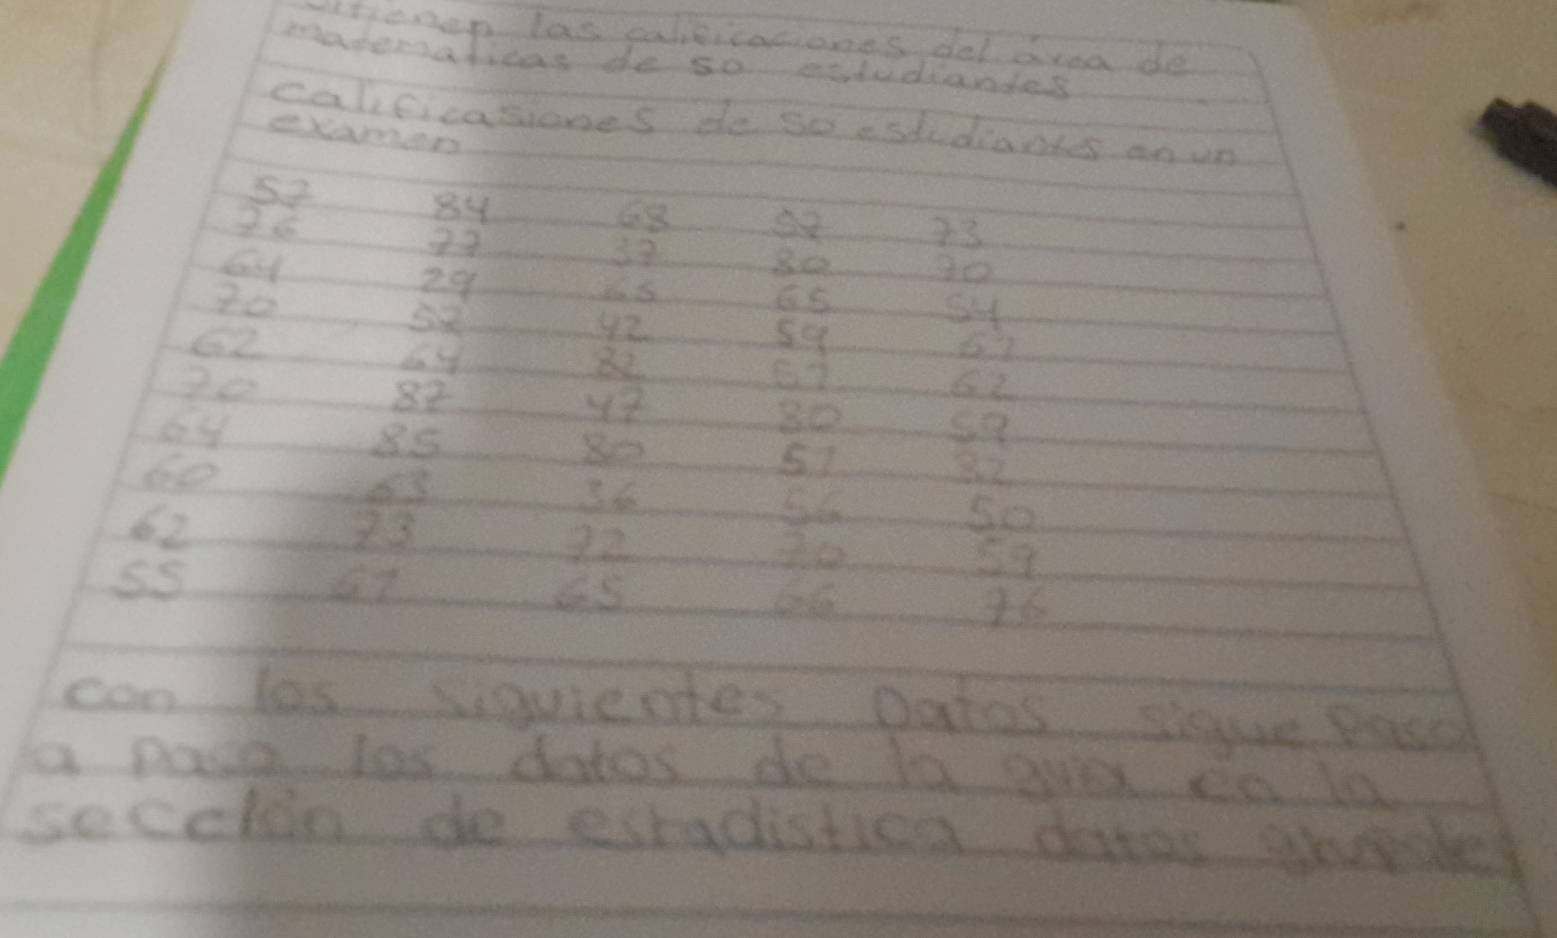 las calificaciones del área de
matematicas de 50 estudiantes
calificasiones de 50 estudiantes en un
examen
52 84 68 57 73
76 77 37 80 70
64 29 65 65 54
70 52 42 59 67
62 64 82 57 62
70 87 47 80 59
64 85 80 51 82
60 63 36 56 50
62 73 72 70 59
55 67 65 66 76
con los siguientes Datos sigue paso
a paso los datos de la guia en la
sección de estadistica datos